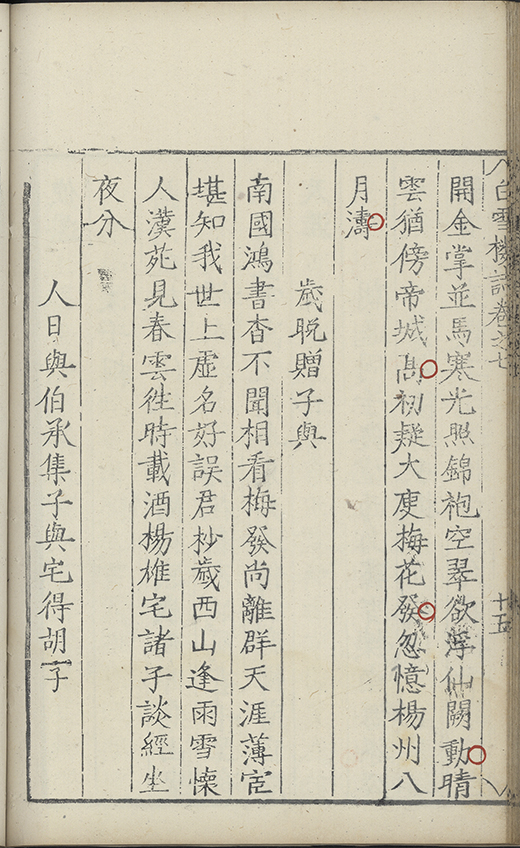 白雪樓詩卷之七 十五
開金掌並馬寒光照錦袍空翠欲浮仙闕動晴
雲猶傍帝城高初疑大庾梅花發忽憶楊州八
月濤
歲晚贈子與
南國鴻書杳不聞相看梅發尚離群天涯薄宦
堪知我世上虛名好誤君杪歲西山逢雨雪懷
人漢苑見春雲徃時載酒楊雄宅諸子談經坐
夜分
人日與伯承集子與宅得胡字